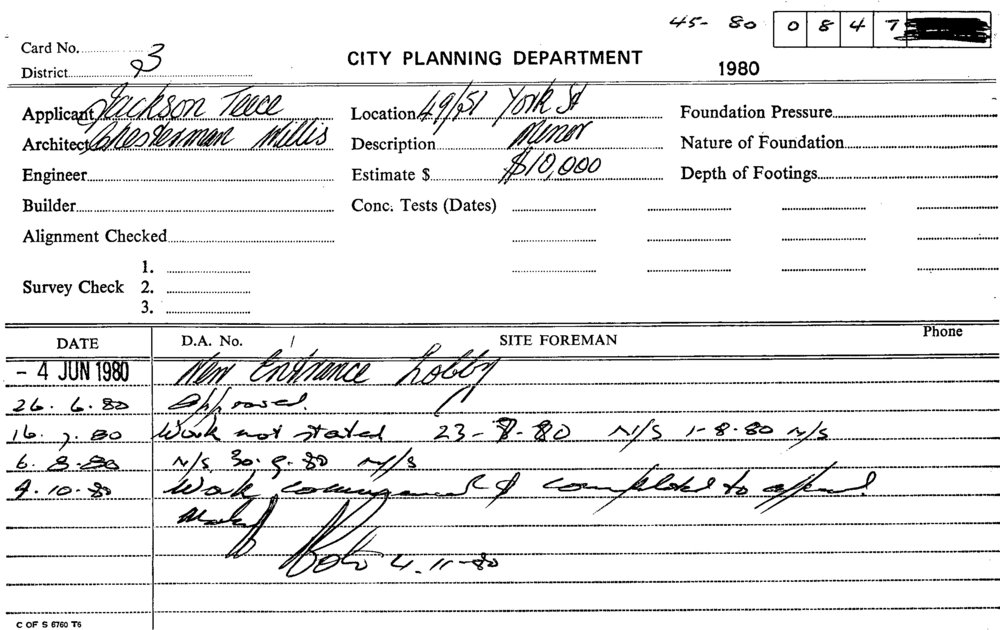 45- 80 0 8 4 7
Card No. 3
CITY PLANNING DEPARTMENT
1980
District
Applicant Jackson Teece
Location 49/51 York St
Foundation Pressure
Architect Chesterman Willis
Description Minor
Nature of Foundation
Engineer
Estimate $ $10,000
Depth of Footings
Builder
Conc. Tests (Dates)
Alignment Checked
Survey Check
1.
2.
3.
DATE D.A. No. SITE FOREMAN Phone
- 4 JUN 1980 New Entrance Lobby
26. 6. 80 Approved.
16. 7. 80 Work not stated 23-7-80 N/S 1-8-80 N/S
6. 8. 80 N/S 30. 9. 80 N/S
9. 10. 80 Work commenced & completed to
4. 11-80
C OF S 6760 T6